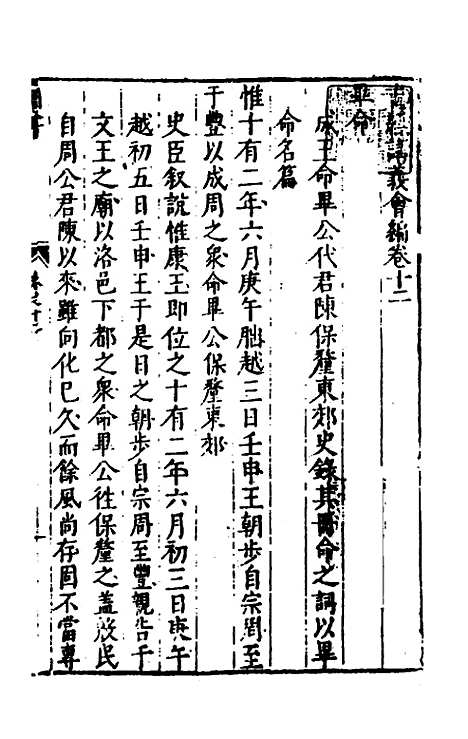 書經講義會編卷十二
畢命
成王命畢公代君陳保釐東郊史錄其冊命之詞以畢
命名篇
惟十有二年六月庚午朏越三日壬申王朝步自宗周至
于豐以成周之衆命畢公保釐東郊
史臣叙說惟康王即位之十有二年六月初三日庚午
越初五日壬申王于是日之朝步自宗周至豐親告于
文王之廟以洛邑下都之衆命畢公徃保釐之蓋殷民
自周公君陳以來雖向化已久而餘風尚存固不當專
卷之十二